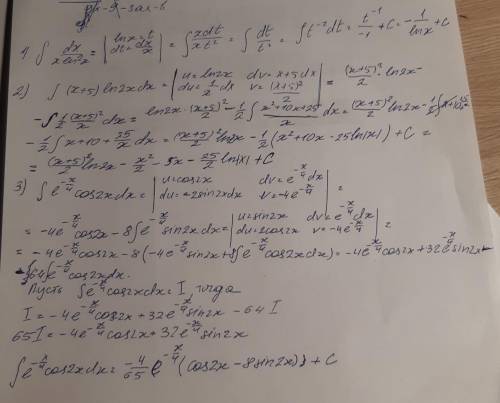 1) ∫ dx/(x ln²x) = | ln x = t, dt = dx/x | = ∫ xdt/(xt²) = ∫ dt/t² = ∫ t⁻²dt = t⁻¹/-1 + C = -1/ln x + C
2) ∫ (x+5) ln2x dx = | u = ln2x dv = x+5 dx, du = 1/x dx v = (x+5)²/2 | = (x+5)²/2 ln2x -
- ∫ 1/2 (x+5)²/x dx = ln2x · (x+5)²/2 - 1/2 ∫ (x²+10x+25)/x dx = (x+5)²/2 ln2x -
- 1/2 ∫ x+10+25/x dx = (x+5)²/2 ln2x - 1/2 (x²+10x-25ln|x|) + C =
= (x+5)²/2 ln2x - x²/2 - 5x - 25/2 ln|x| + C
3) ∫ e^(-x/4) cos2x dx = | u = cos2x dv = e^(-x/4) dx, du = -2sin2x dx v = -4e^(-x/4) | =
= -4e^(-x/4) cos2x - 8∫ e^(-x/4) sin2x dx = | u = sin2x dv = e^(-x/4) dx, du = 2cos2x v = -4e^(-x/4) | =
= -4e^(-x/4) cos2x - 8(-4e^(-x/4) sin2x + 8∫ e^(-x/4) cos2x dx) = -4e^(-x/4) cos2x + 32e^(-x/4) sin2x -
- ∫ 64e^(-x/4) cos2x dx.
Пусть ∫ e^(-x/4) cos2x dx = I, тогда
I = -4e^(-x/4) cos2x + 32e^(-x/4) sin2x - 64 I
65I = -4e^(-x/4) cos2x + 32e^(-x/4) sin2x
∫ e^(-x/4) cos2x dx = -4/65 e^(-x/4) (cos2x - 8sin2x) + C